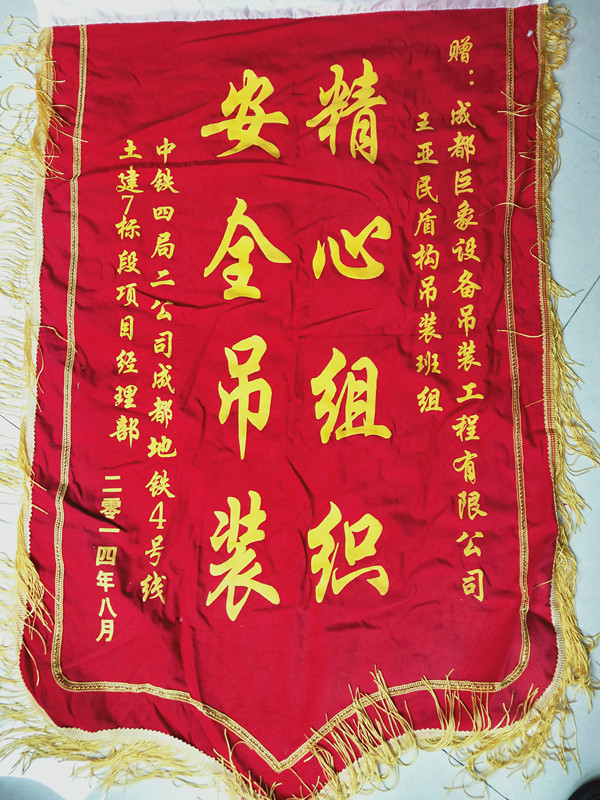 赠：成都巨象设备吊装工程有限公司
王亚民盾构吊装班组
精心组织
安全吊装
中铁四局二公司成都地铁4号线
土建7标段项目经理部
二零一四年八月